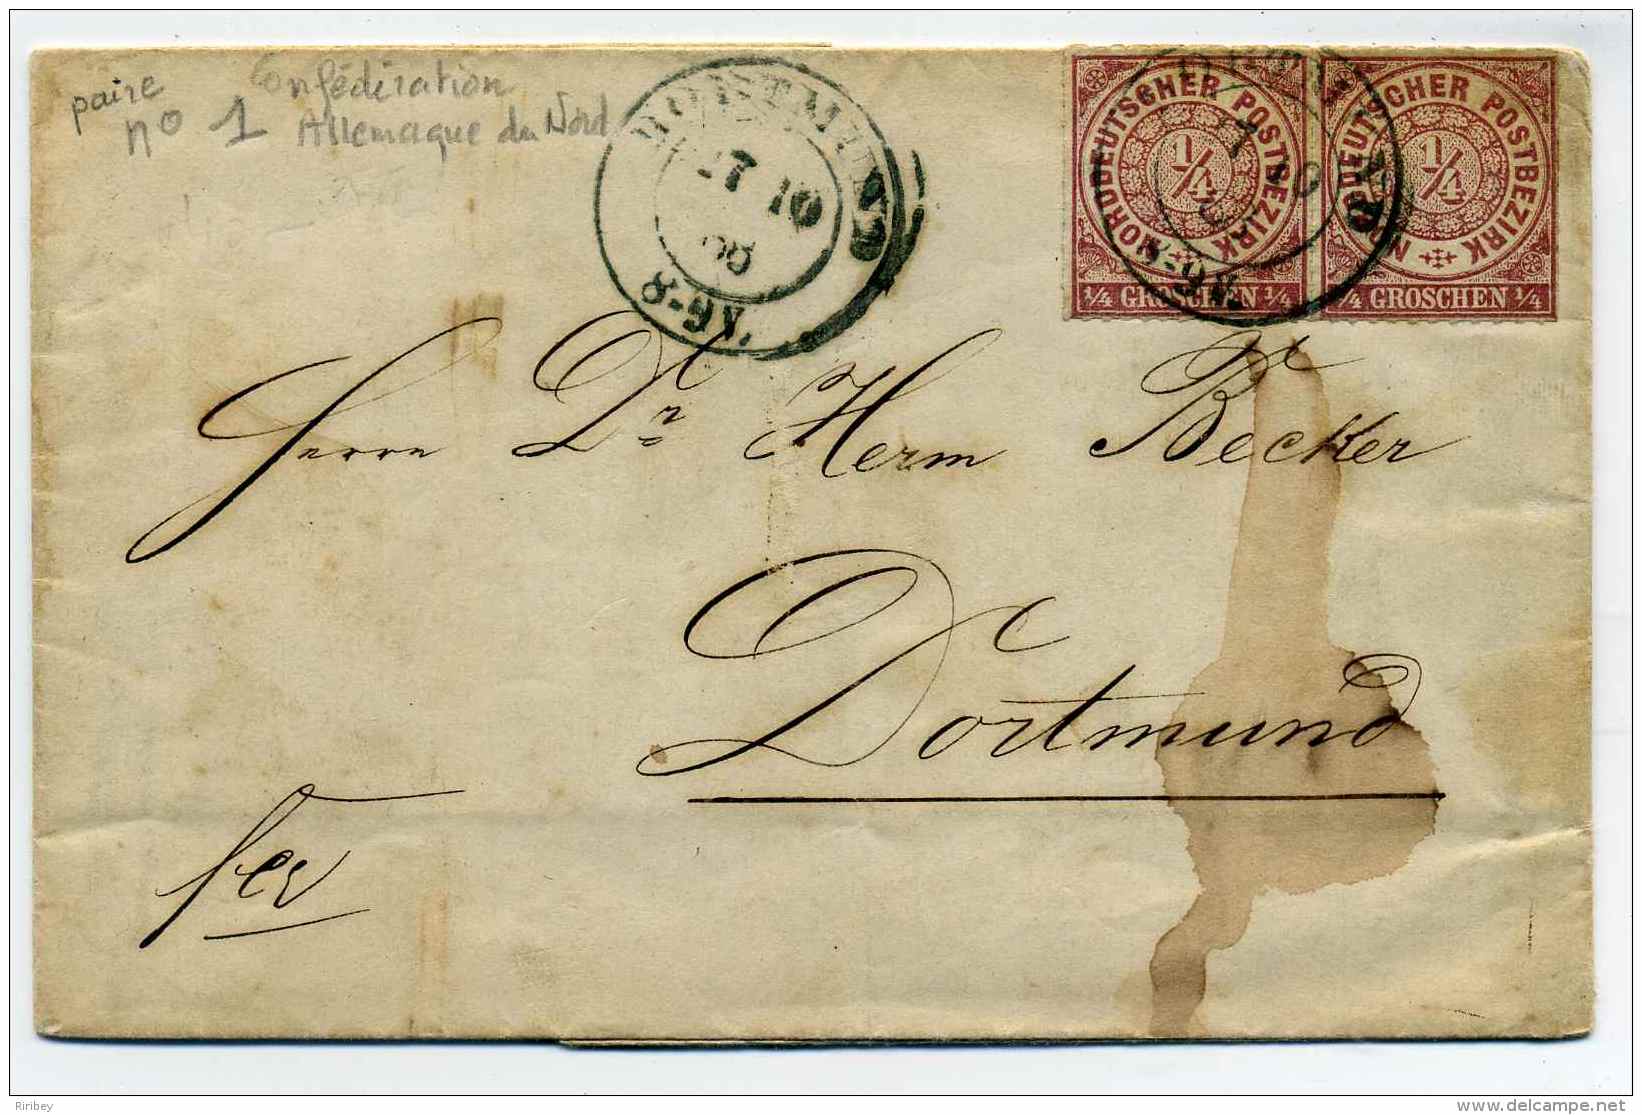 paire
n° 1
Confédération
Allemagne du Nord
DORTMUND
17 10
68
NORDDEUTSCHER POSTBEZIRK
1/4
1/4 GROSCHEN 1/4
NORDDEUTSCHER POSTBEZIRK
1/4
1/4 GROSCHEN 1/4
Herrn Dr Herm Becker
Dortmund
Ribibey
www.delcampe.net